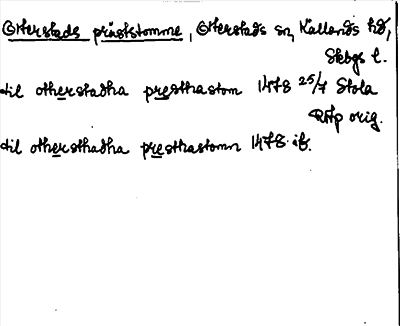 Otterstads präststomme, Otterstads sn, Kållands hd,
Skbgs l.
til otherstadha presthastom 1478 25/7 Stola
RAp orig.
til othersthadha presthastomn 1478 ib.